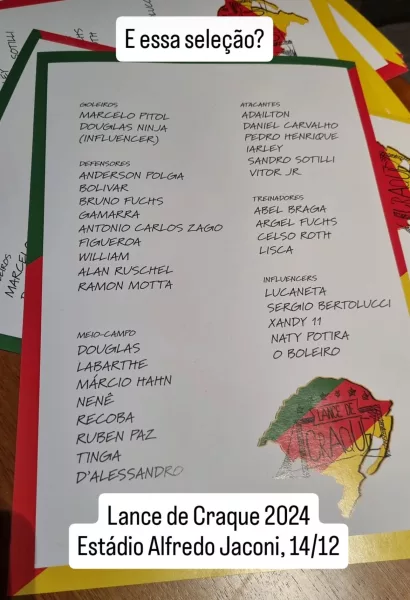 E essa seleção?
GOLEIROS
MARCELO PITOL
DOUGLAS NINJA
(INFLUENCER)
DEFENSORES
ANDERSON POLGA
BOLIVAR
BRUNO FUCHS
GAMARRA
ANTONIO CARLOS ZAGO
FIGUEROA
WILLIAM
ALAN RUSCHEL
RAMON MOTTA
MEIO-CAMPO
DOUGLAS
LABARTHE
MÁRCIO HAHN
NENÊ
RECOBA
RUBEN PAZ
TINGA
D'ALESSANDRO
ATACANTES
ADAILTON
DANIEL CARVALHO
PEDRO HENRIQUE
IARLEY
SANDRO SOTILLI
VITOR JR.
TREINADORES
ABEL BRAGA
ARGEL FUCHS
CELSO ROTH
LISCA
INFLUENCERS
LUCANETA
SERGIO BERTOLUCCI
XANDY 11
NATY POTIRA
O BOLEIRO
LANCE DE
CRAQUE
Lance de Craque 2024
Estádio Alfredo Jaconi, 14/12